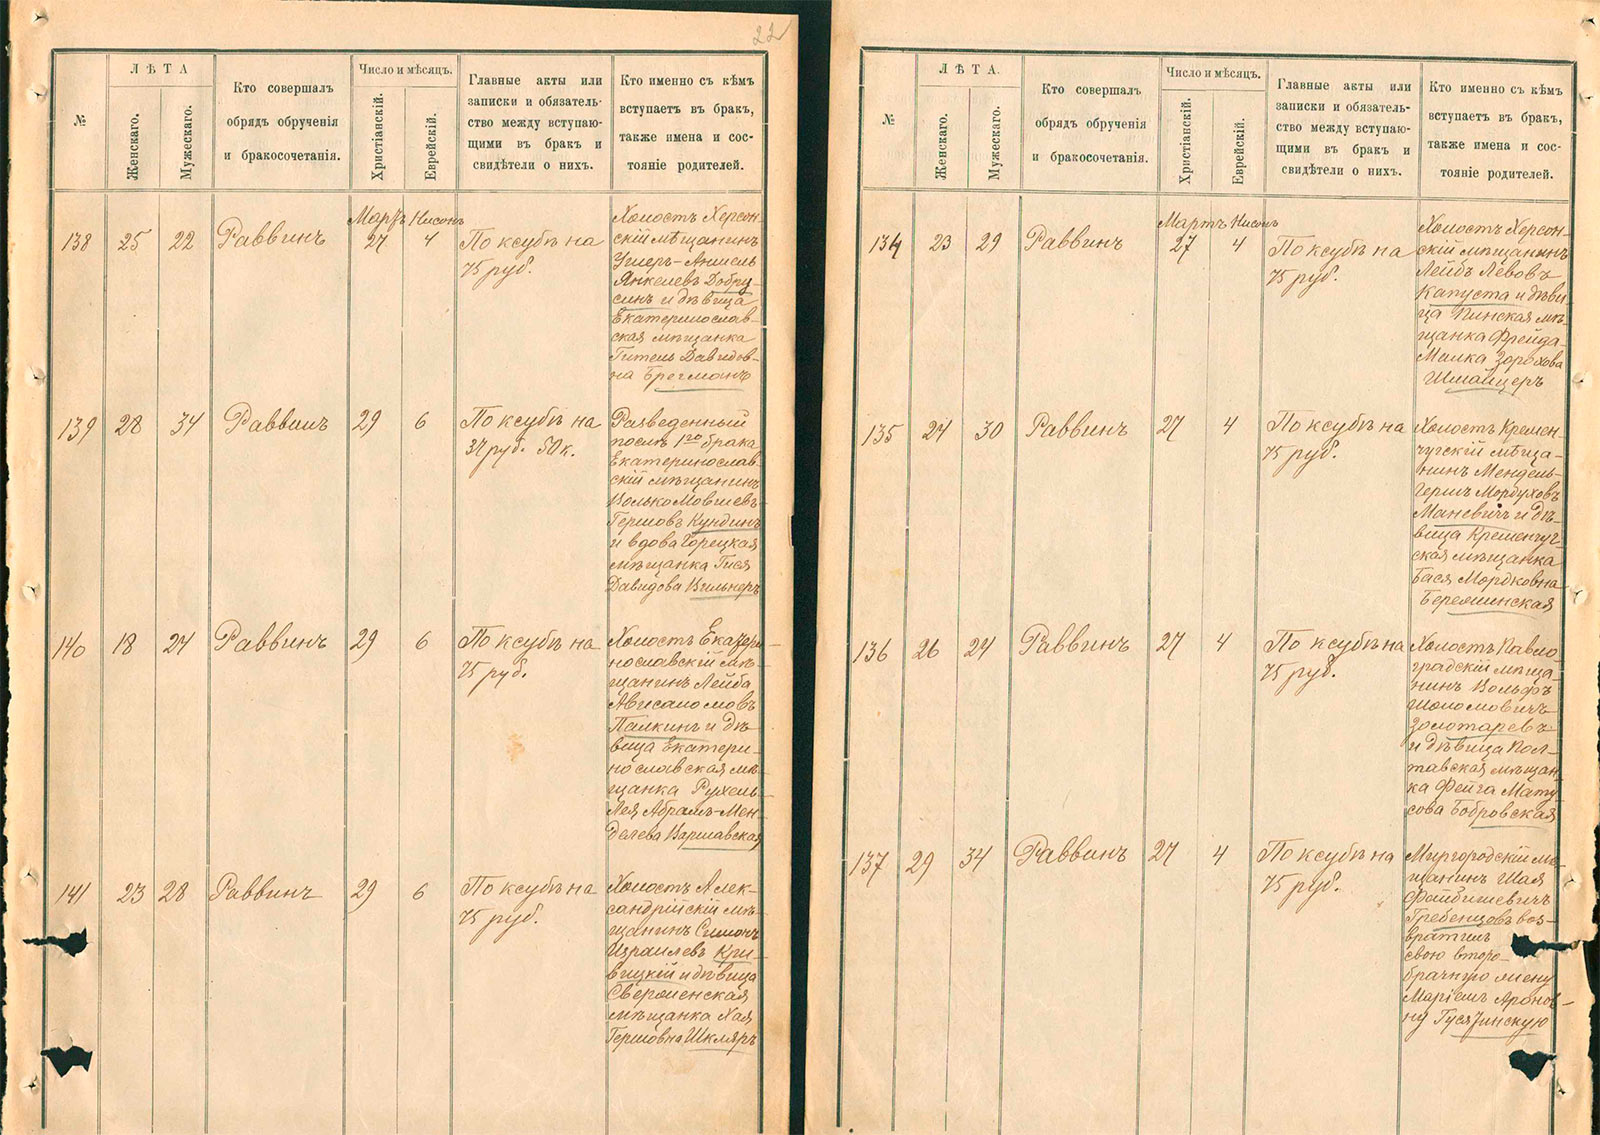 22
№
ЛѢТА
Женскаго.
Мужескаго.
Кто совершалъ
обрядъ обрученія
и бракосочетанія.
Число и мѣсяцъ.
Христіанскій.
Еврейскій.
Главные акты или
записки и обязатель-
ство между вступаю-
щими въ бракъ и
свидѣтели о нихъ.
Кто именно съ кѣмъ
вступаетъ въ бракъ,
также имена и сос-
тояніе родителей.
138 25 22 Раввинъ
Мартъ Нисонъ
27 4
По ксубѣ на
75 руб.
Холостъ Херсон-
скій мѣщанинъ
Ушеръ-Аншель
Янкелевъ Добру-
синъ и дѣвица
Екатеринослав-
ская мѣщанка
Гитель Давидов-
на Брегманъ
139 28 34 Раввинъ 29 6
По ксубѣ на
37 руб. 50 к.
Разведенный
послѣ 1го брака
Екатеринослав-
скій мѣщанинъ
Волько Мовшевъ-
Гершовъ Кундинъ
и вдова Горецкая
мѣщанка Гися
Давидова Вильнеръ
140 18 24 Раввинъ 29 6
По ксубѣ на
75 руб.
Холостъ Екатери-
нославскій мѣ-
щанинъ Лейба
Ависаломовъ
Палкинъ и дѣ-
вица Екатери-
нославская мѣ-
щанка Рухель-
Лея Абрамъ-Мен-
делева Варшавская
141 23 28 Раввинъ 29 6
По ксубѣ на
75 руб.
Холостъ Алек-
сандрійскій мѣ-
щанинъ Симонъ
Израилевъ Кри-
вицкій и дѣвица
Сверженская
мѣщанка Хая
Гершовна Шкляръ
№
ЛѢТА.
Женскаго.
Мужескаго.
Кто совершалъ
обрядъ обрученія
и бракосочетанія.
Число и мѣсяцъ.
Христіанскій.
Еврейскій.
Главные акты или
записки и обязатель-
ство между вступаю-
щими въ бракъ и
свидѣтели о нихъ.
Кто именно съ кѣмъ
вступаетъ въ бракъ,
также имена и сос-
тояніе родителей.
134 23 29 Раввинъ
Мартъ Нисонъ
27 4
По ксубѣ на
75 руб.
Холостъ Херсон-
скій мѣщанинъ
Лейбъ Левовъ
Капуста и дѣви-
ца Пинская мѣ-
щанка Фрейда-
Малка Зорохова
Шмайцеръ
135 24 30 Раввинъ 27 4
По ксубѣ на
75 руб.
Холостъ Кремен-
чугскій мѣща-
нинъ Мендель-
Гершъ Мордуховъ
Маневичъ и дѣ-
вица Кременчуг-
ская мѣщанка
Бася Мордковна
Беремшинская
136 26 24 Раввинъ 27 4
По ксубѣ на
75 руб.
Холостъ Павло-
градскій мѣща-
нинъ Вольфъ
Шоломовичъ
Золотаревъ
и дѣвица Пол-
тавская мѣщан-
ка Фейга Мату-
сова Бобровская
137 29 34 Раввинъ 27 4
По ксубѣ на
75 руб.
Миргородскій мѣ-
щанинъ Шая
Файбишевичъ
Гребенцовъ воз-
вратилъ
свою второ-
брачную жену
Маріемъ Аронов-
ну Гусятинскую